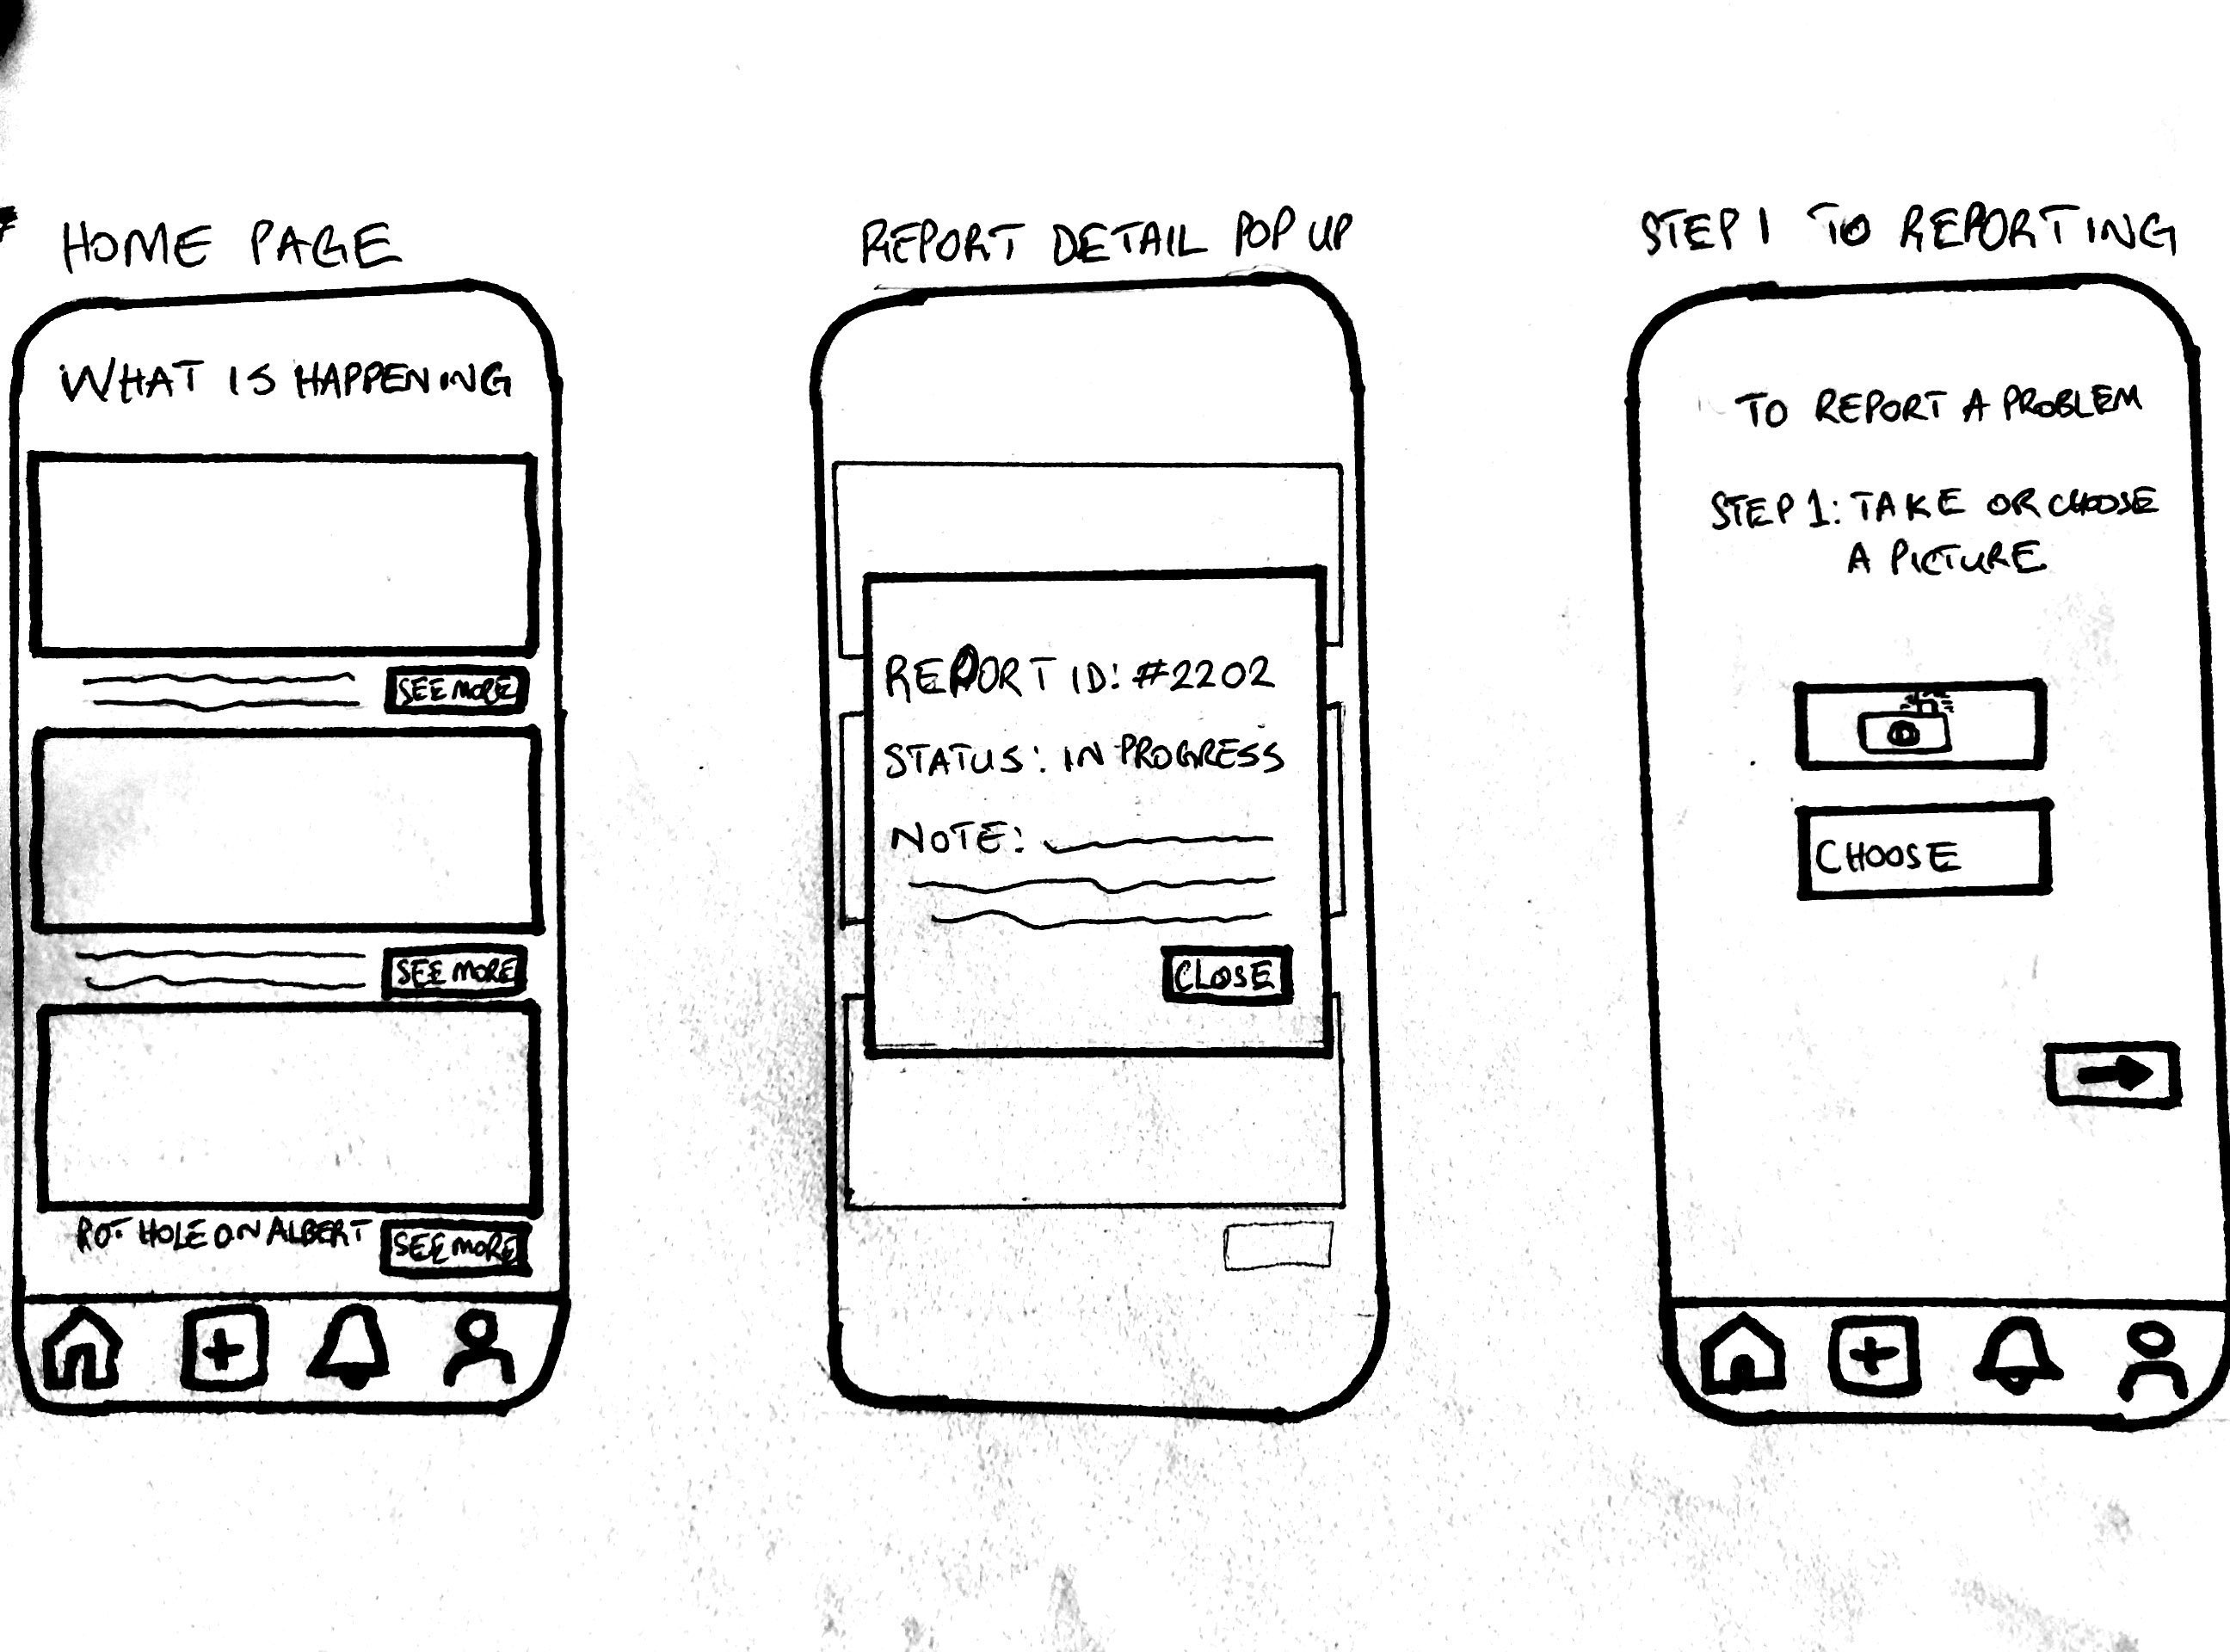 HOME PAGE
WHAT IS HAPPENING
SEE MORE
SEE MORE
POT HOLE ON ALBERT
SEE MORE
REPORT DETAIL POP UP
REPORT ID: #2202
STATUS: IN PROGRESS
NOTE:
CLOSE
STEP 1 TO REPORTING
TO REPORT A PROBLEM
STEP 1: TAKE OR CHOOSE
A PICTURE
CHOOSE